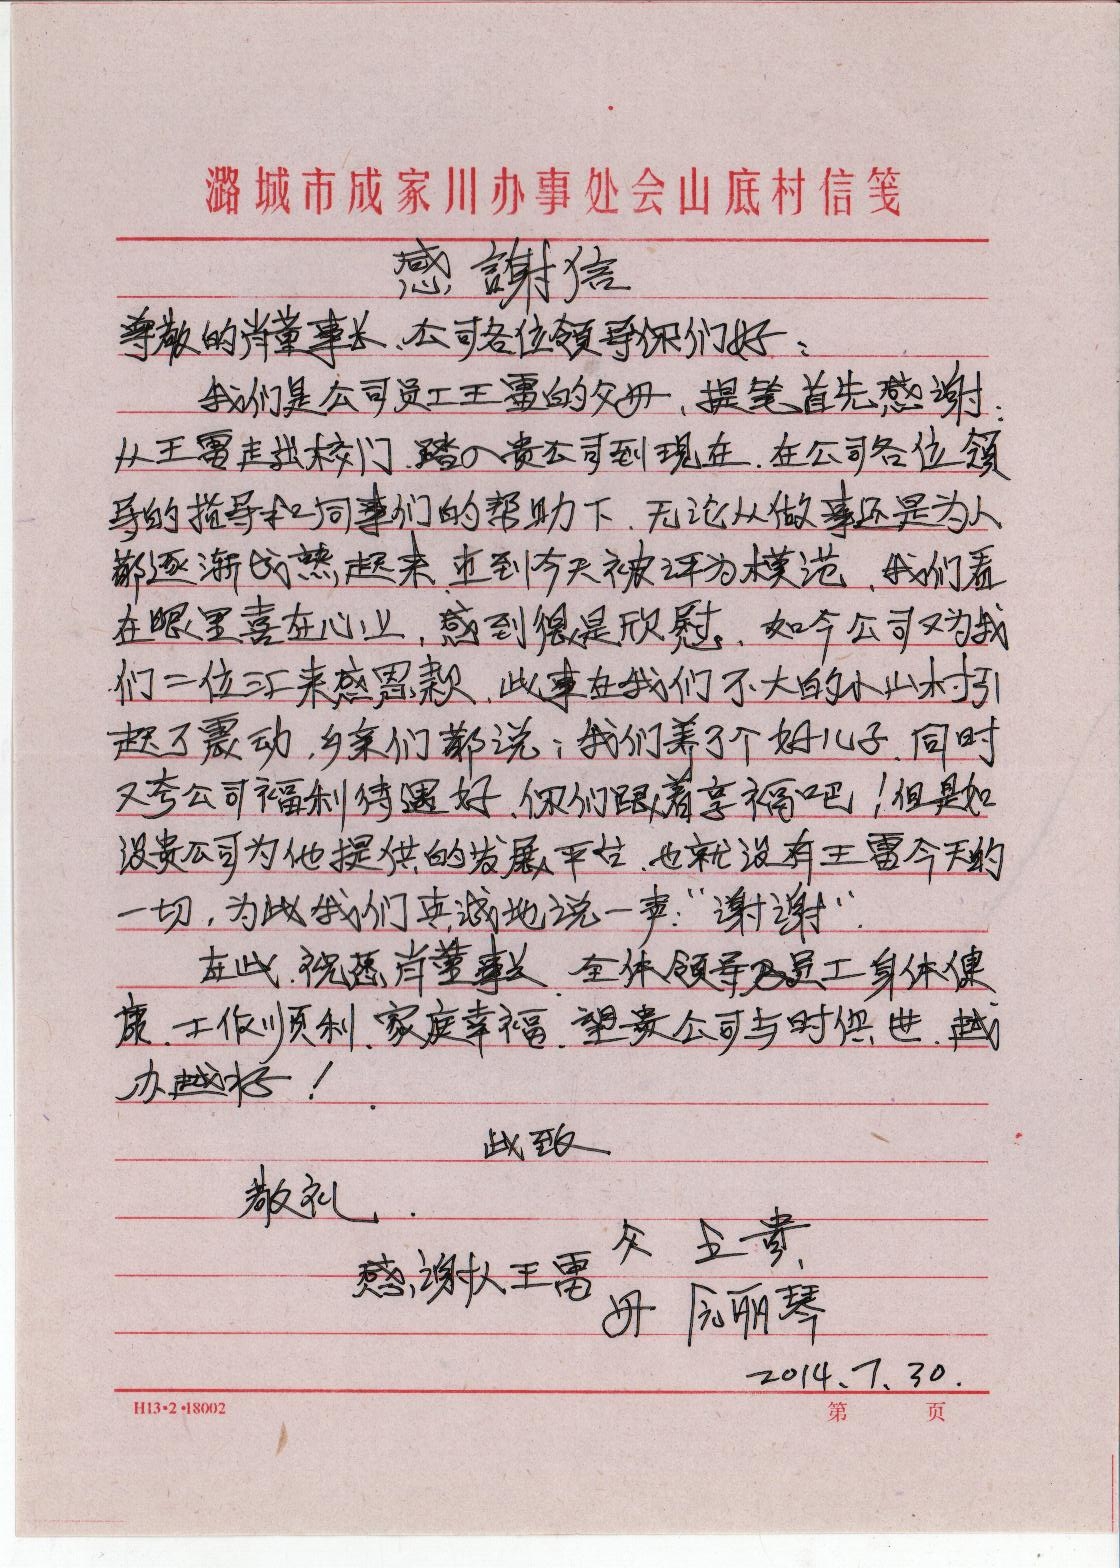 潞城市成家川办事处会山底村信笺
感謝信
尊敬的肖董事长、公司各位领导你们好：
我们是公司员工王雷的父母、提笔首先感谢：
从王雷走出校门、踏入贵公司到现在、在公司各位领
导的指导和同事们的帮助下、无论从做事还是为人
都逐渐成熟起来、直到今天被评为模范、我们看
在眼里喜在心上、感到很是欣慰。如今公司又为我
们二位汇来感恩款、此事在我们不大的小山村引
起了震动、乡亲们都说：我们养了个好儿子、同时
又夸公司福利待遇好、你们跟着享福吧！但是如
没贵公司为他提供的发展平台、也就没有王雷今天的
一切、为此我们真诚地说一声：“谢谢”.
在此、祝愿肖董事长、全体领导及员工身体健
康、工作顺利、家庭幸福、望贵公司与时俱进、越
办越好！
此致
敬礼.
感谢人王雷 父 贵
母 丽琴
2014、7、30.
H13·2·18002 第 页